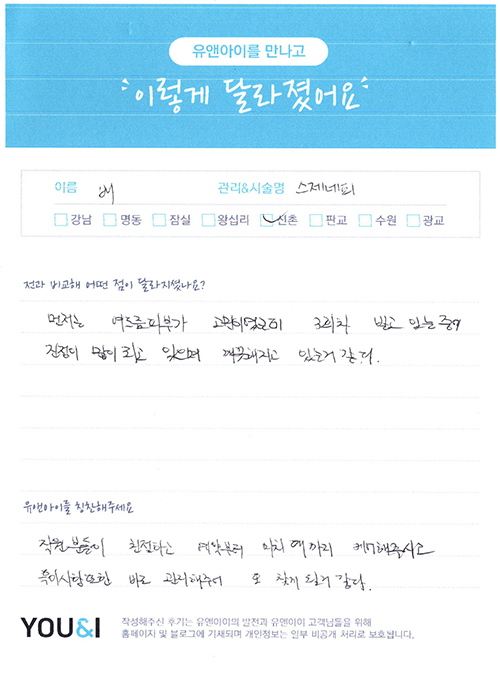 유앤아이를 만나고
이렇게 달라졌어요
이름 배 관리&시술명 스제네피
강남 명동 잠실 왕십리 신촌 판교 수원 광교
전과 비교해 어떤 점이 달라지셨나요?
먼저는 여드름피부가 고민이였고 3회차 받고 있는 중에
진정이 많이 되고 있으며 깨끗해지고 있는거 같다.
유앤아이를 칭찬해주세요
직원분들이 친절하고 예약부터 마치 까지 케어해주시고
특이사항또한 바로 관리해주어 또 찾게 될거 같다.
YOU&I 작성해주신 후기는 유앤아이의 발전과 유앤아이 고객님들을 위해
홈페이지 및 블로그에 기재되며 개인정보는 일부 비공개 처리로 보호됩니다.